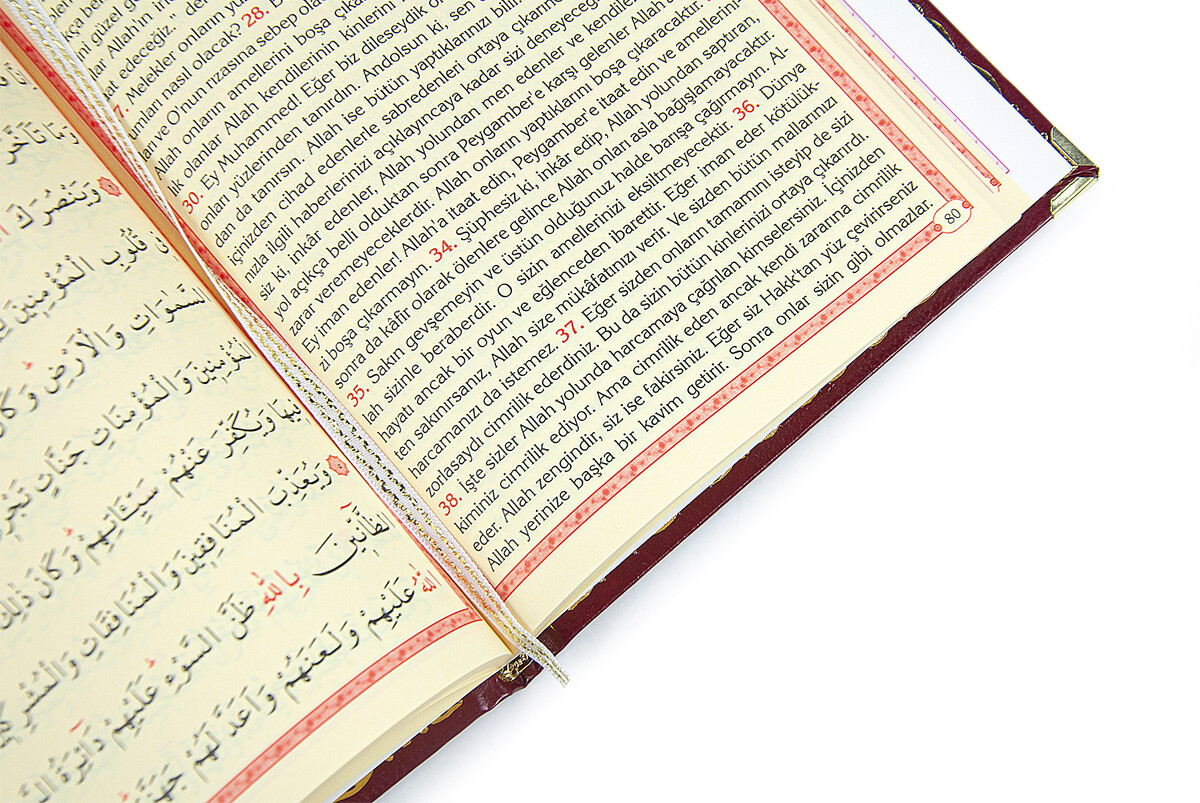 ما تَأَخَّرَ
وَيَنْصُرَكَ
قُلُوبِ الْمُؤْمِنِينَ
السَّمٰوَاتِ وَالْاَرْضِ وَكَانَ
الْمُؤْمِنِينَ وَالْمُؤْمِنَاتِ جَنَّاتٍ تَجْرِي
فِيهَا وَيُكَفِّرَ عَنْهُمْ سَيِّئَاتِهِمْ وَكَانَ ذٰلِكَ
وَيُعَذِّبَ الْمُنَافِقِينَ وَالْمُنَافِقَاتِ وَالْمُشْرِكِينَ
الظَّٓانِّينَ بِاللّٰهِ ظَنَّ السَّوْءِ عَلَيْهِمْ دَٓائِرَةُ
اللّٰهُ عَلَيْهِمْ وَلَعَنَهُمْ وَاَعَدَّ لَهُمْ جَهَنَّمَ
ni güzel
Allah'ın
edeceğiz.”
Melekler onların
nasıl olacak? 28.
ve O'nun rızasına sebep
Allah onların amellerini boşa
lik olanlar Allah kendilerinin kinlerini
30. Ey Muhammed! Eğer biz dileseydik
onları yüzlerinden tanırdın. Andolsun ki, sen
dan da tanırsın. Allah ise bütün yaptıklarınızı
içinizden cihad edenlerle sabredenleri ortaya
nızla ilgili haberlerinizi açıklayıncaya kadar sizi
siz ki, inkâr edenler, Allah yolundan men edenler ve
yol açıkça belli olduktan sonra Peygamber'e karşı gelenler
zarar veremeyeceklerdir. Allah onların yaptıklarını boşa çıkaracaktır.
Ey iman edenler! Allah'a itaat edin, Peygamber'e itaat edin ve amellerini-
zi boşa çıkarmayın. 34. Şüphesiz ki, inkâr edip, Allah yolundan saptıran,
sonra da kâfir olarak ölenlere gelince Allah onları asla bağışlamayacaktır.
35. Sakın gevşemeyin ve üstün olduğunuz halde barışa çağırmayın. Al-
lah sizinle beraberdir. O sizin amellerinizi eksiltmeyecektir. 36. Dünya
hayatı ancak bir oyun ve eğlenceden ibarettir. Eğer iman eder kötülük-
ten sakınırsanız, Allah size mükâfatınızı verir. Ve sizden bütün mallarınızı
harcamanızı da istemez. 37. Eğer sizden onların tamamını isteyip de sizi
zorlasaydı cimrilik ederdiniz. Bu da sizin bütün kinlerinizi ortaya çıkarırdı.
38. İşte sizler Allah yolunda harcamaya çağrılan kimselersiniz. İçinizden
kiminiz cimrilik ediyor. Ama cimrilik eden ancak kendi zararına cimrilik
eder. Allah zengindir, siz ise fakirsiniz. Eğer siz Hakk'tan yüz çevirirseniz
Allah yerinize başka bir kavim getirir. Sonra onlar sizin gibi olmazlar.
80